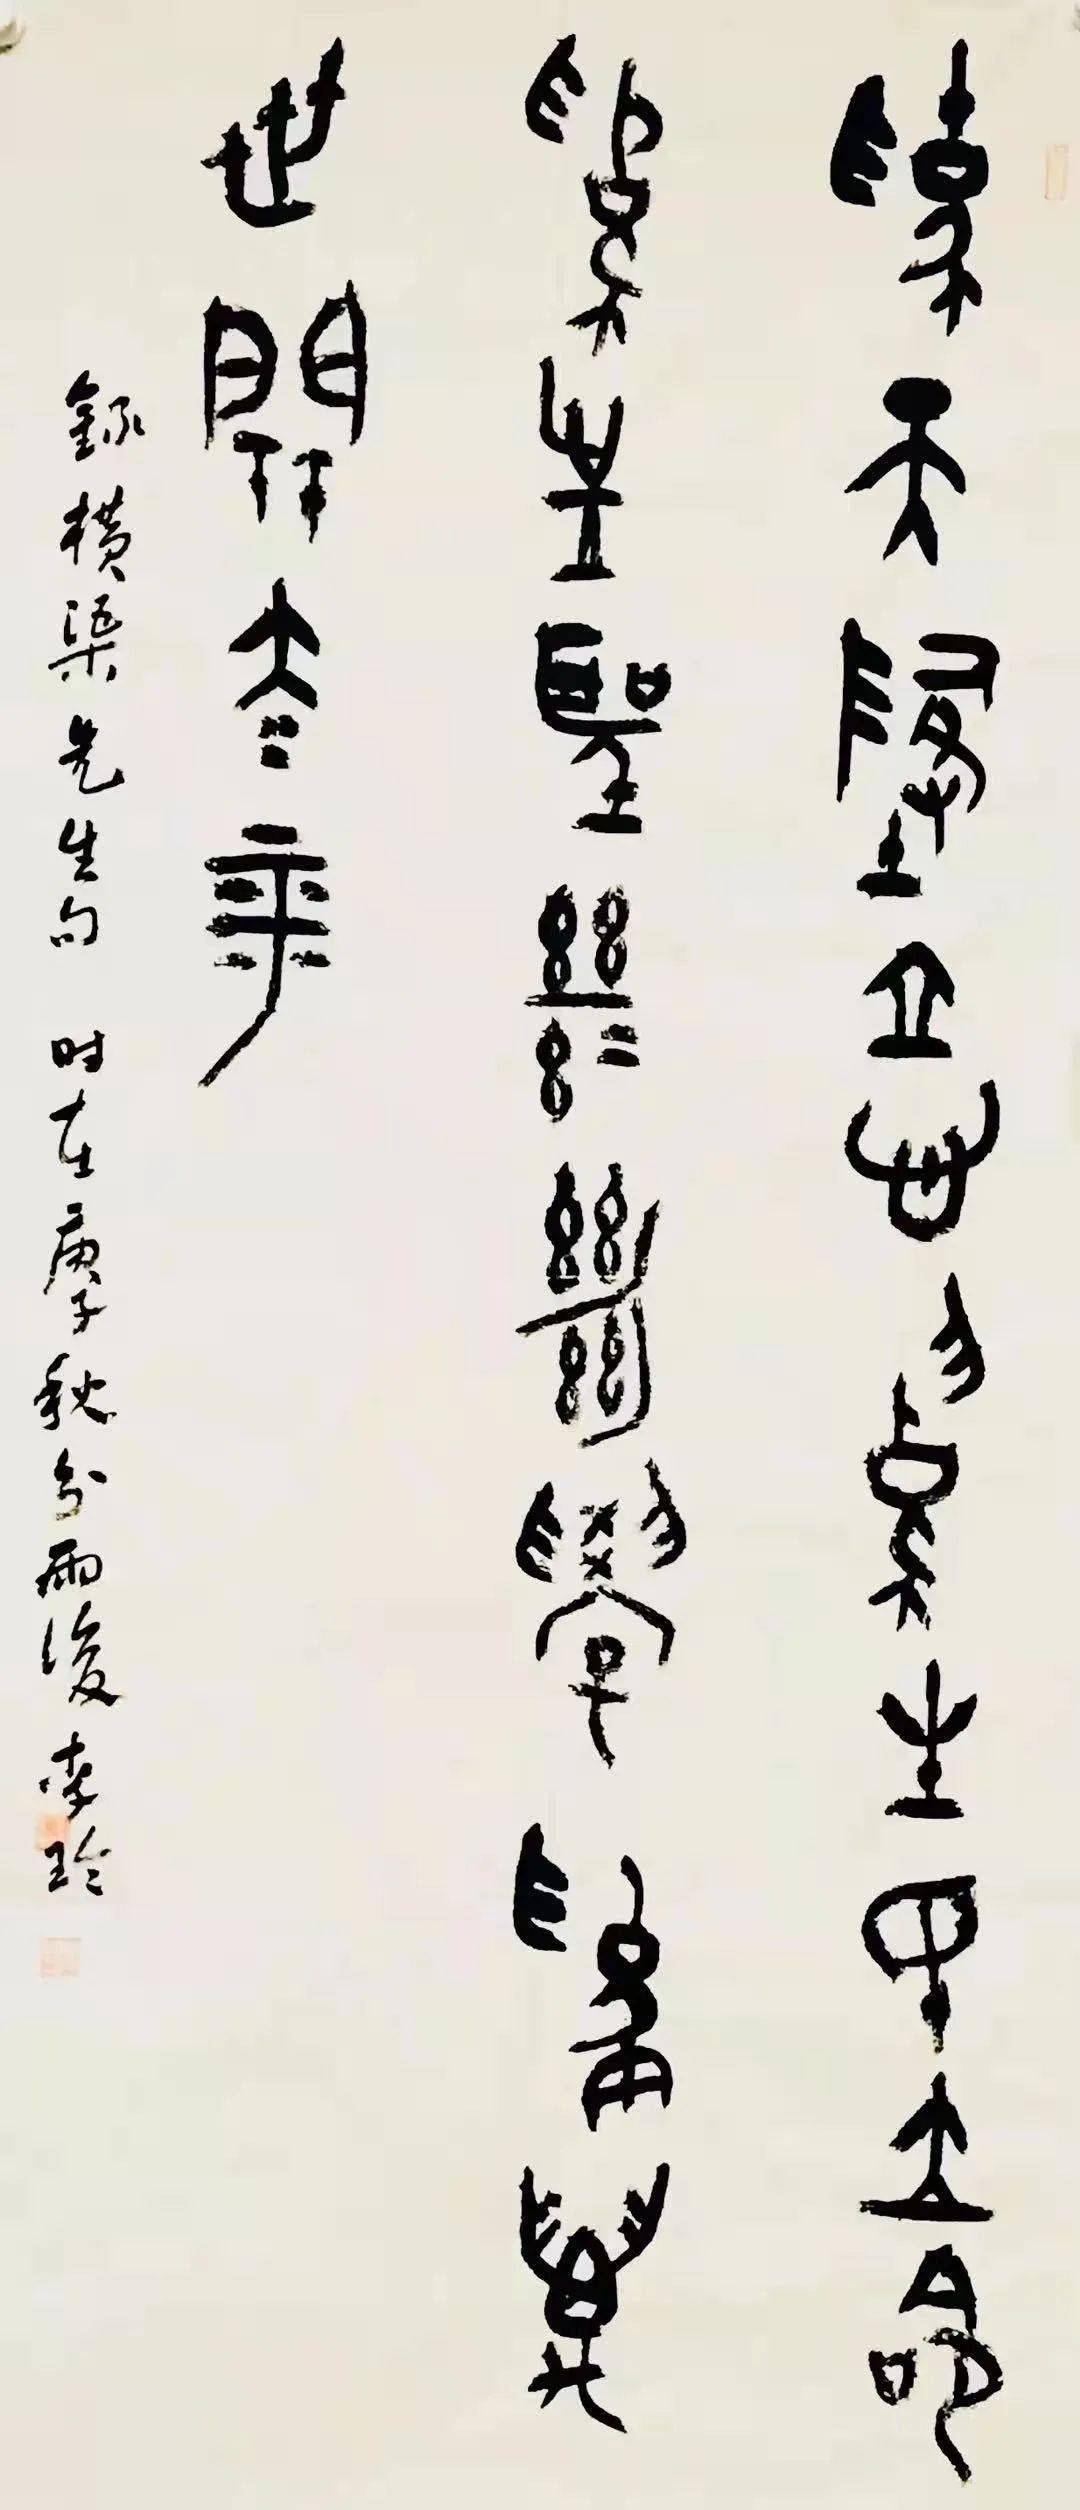 為天地立心為生民立命
為往聖繼絕學為萬
世開太平
錄橫渠先生句 时在庚子秋分雨後 李玲